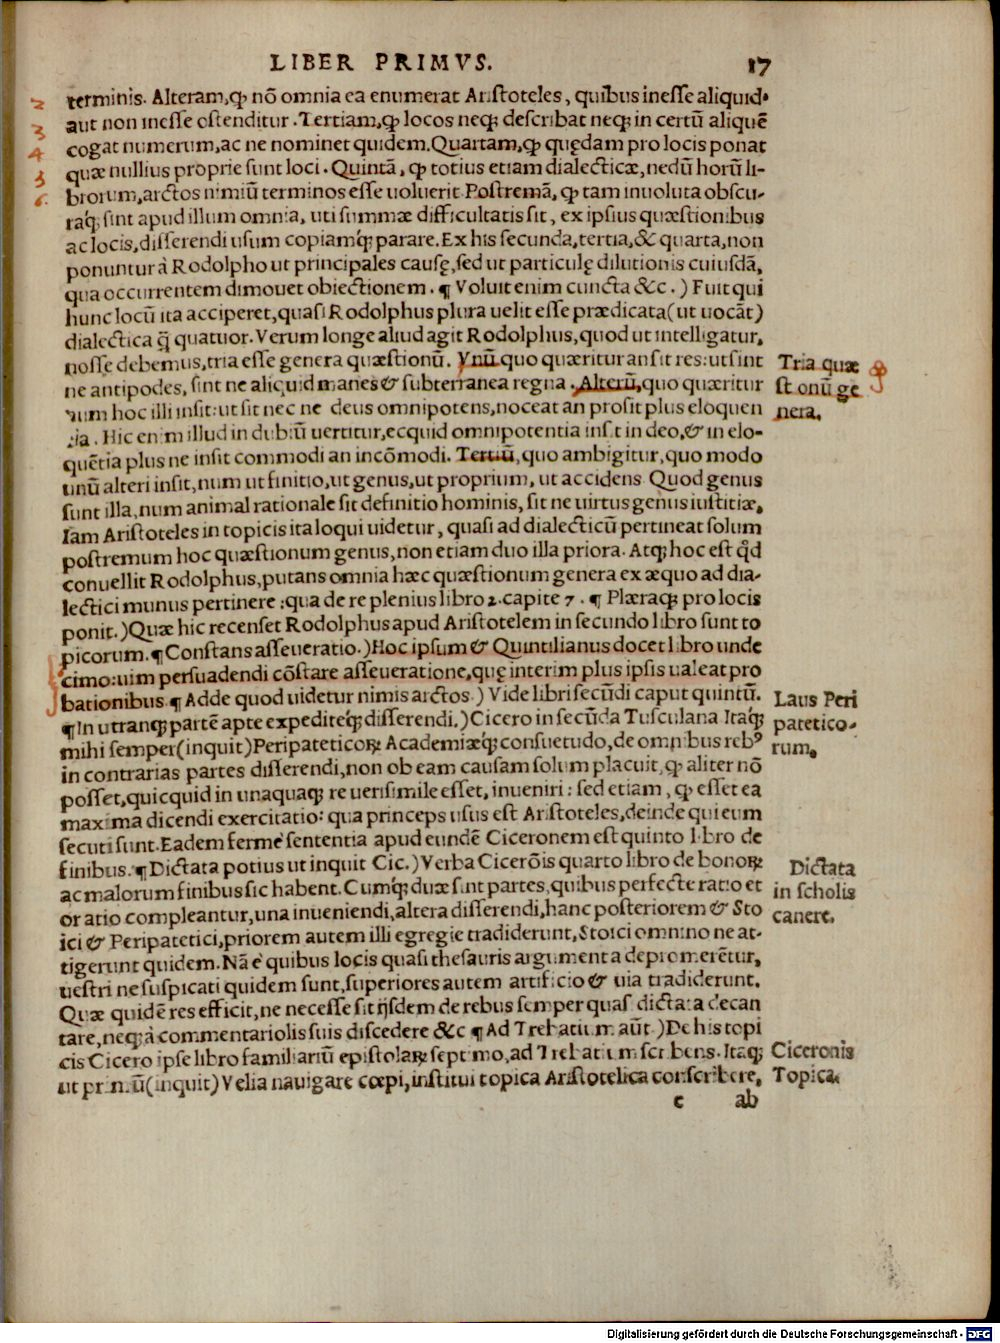 LIBER PRIMVS. 17
2
3
4
3
6.
terminis. Alteram, ꝙ nõ omnia ea enumerat Aristoteles, quibus inesse aliquid
aut non inesse ostenditur. Tertiam, ꝙ locos neqꝫ describat neqꝫ in certũ aliquẽ
cogat numerum, ac ne nominet quidem. Quartam, ꝙ quędam pro locis ponat
quæ nullius proprie sunt loci. Quintã, ꝙ totius etiam dialecticæ, nedũ horũ li-
brorum, arctos nimiũ terminos esse uoluerit. Postremã, ꝙ tam inuoluta obscu-
raqꝫ sint apud illum omnia, uti summæ difficultatis sit, ex ipsius quæstionibus
ac locis, disserendi usum copiamqꝫ parare. Ex his secunda, tertia, & quarta, non
ponuntur à Rodolpho ut principales causę, sed ut particulę dilutionis cuiusdã,
qua occurrentem dimouet obiectionem. ¶ Voluit enim cuncta &c.) Fuit qui
hunc locũ ita acciperet, quasi Rodolphus plura uelit esse prædicata (ut uocãt)
dialectica q̃ quatuor. Verum longe aliud agit Rodolphus, quod ut intelligatur,
nosse debemus, tria esse genera quæstionũ. Vnũ, quo quæritur an sit res: ut sint
ne antipodes, sint ne aliquid manes & subterranea regna. Alterũ, quo quæritur
num hoc illi insit: ut sit nec ne deus omnipotens, noceat an prosit plus eloquen
tia. Hic enim illud in dubiũ uertitur, ecquid omnipotentia insit in deo, & in elo-
quẽtia plus ne insit commodi an incõmodi. Tertiũ, quo ambigitur, quo modo
unũ alteri insit, num ut finitio, ut genus, ut proprium, ut accidens. Quod genus
sunt illa, num animal rationale sit definitio hominis, sit ne uirtus genus iustitiæ.
Iam Aristoteles in topicis ita loqui uidetur, quasi ad dialecticũ pertineat solum
postremum hoc quæstionum genus, non etiam duo illa priora. Atqꝫ hoc est qđ
conuellit Rodolphus, putans omnia hæc quæstionum genera ex æquo ad dia-
lectici munus pertinere: qua de re plenius libro 2. capite 7. ¶ Plæraqꝫ pro locis
ponit.) Quæ hic recenset Rodolphus apud Aristotelem in secundo libro sunt to
picorum. ¶ Constans asseueratio.) Hoc ipsum & Quintilianus docet libro unde
cimo: uim persuadendi cõstare asseueratione, quę interim plus ipsis ualeat pro
bationibus. ¶ Adde quod uidetur nimis arctos.) Vide libri secũdi caput quintũ.
¶ In utranqꝫ partẽ apte expediteqꝫ disserendi.) Cicero in secũda Tusculana Itaqꝫ
mihi semper (inquit) Peripateticoꝝ Academiæqꝫ consuetudo, de omnibus rebꝰ
in contrarias partes disserendi, non ob eam causam solum placuit, ꝙ aliter nõ
posset, quicquid in unaquaqꝫ re uerisimile esset, inueniri: sed etiam, ꝙ esset ea
maxima dicendi exercitatio: qua princeps usus est Aristoteles, deinde qui eum
secuti sunt. Eadem ferme sententia apud eundẽ Ciceronem est quinto libro de
finibus. ¶ Dictata potius ut inquit Cic.) Verba Cicerõis quarto libro de bonoꝝ
ac malorum finibus sic habent. Cumqꝫ duæ sint partes, quibus perfecte ratio et
oratio compleantur, una inueniendi, altera disserendi, hanc posteriorem & Sto
ici & Peripatetici, priorem autem illi egregie tradiderunt, Stoici omnino ne at-
tigerunt quidem. Nã è quibus locis quasi thesauris argumenta depromerẽtur,
uestri ne suspicati quidem sunt, superiores autem artificio & uia tradiderunt.
Quæ quidẽ res efficit, ne necesse sit ijsdem de rebus semper quasi dictata decan
tare, neqꝫ à commentariolis suis discedere &c ¶ Ad Trebatium aũt.) De his topi
cis Cicero ipse libro familiariũ epistolaꝝ septimo, ad Trebatium scribens. Itaqꝫ
ut primũ (inquit) Velia nauigare cœpi, institui topica Aristotelica conscribere,
c ab
Tria quæ
stionũ ge
nera.
Laus Peri
patetico-
rum.
Dictata
in scholis
canere.
Ciceronis
Topica.
Digitalisierung gefördert durch die Deutsche Forschungsgemeinschaft - DFG